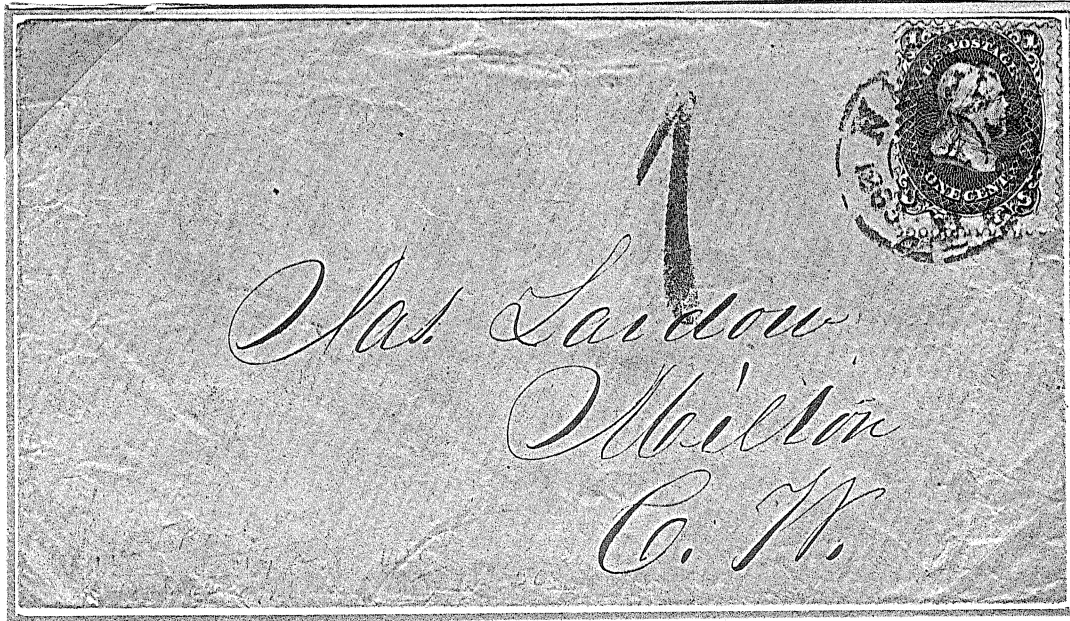 1 1
U.S. POSTAGE
ONE CENT
1
Jas. Laidlow
Milton
C. W.